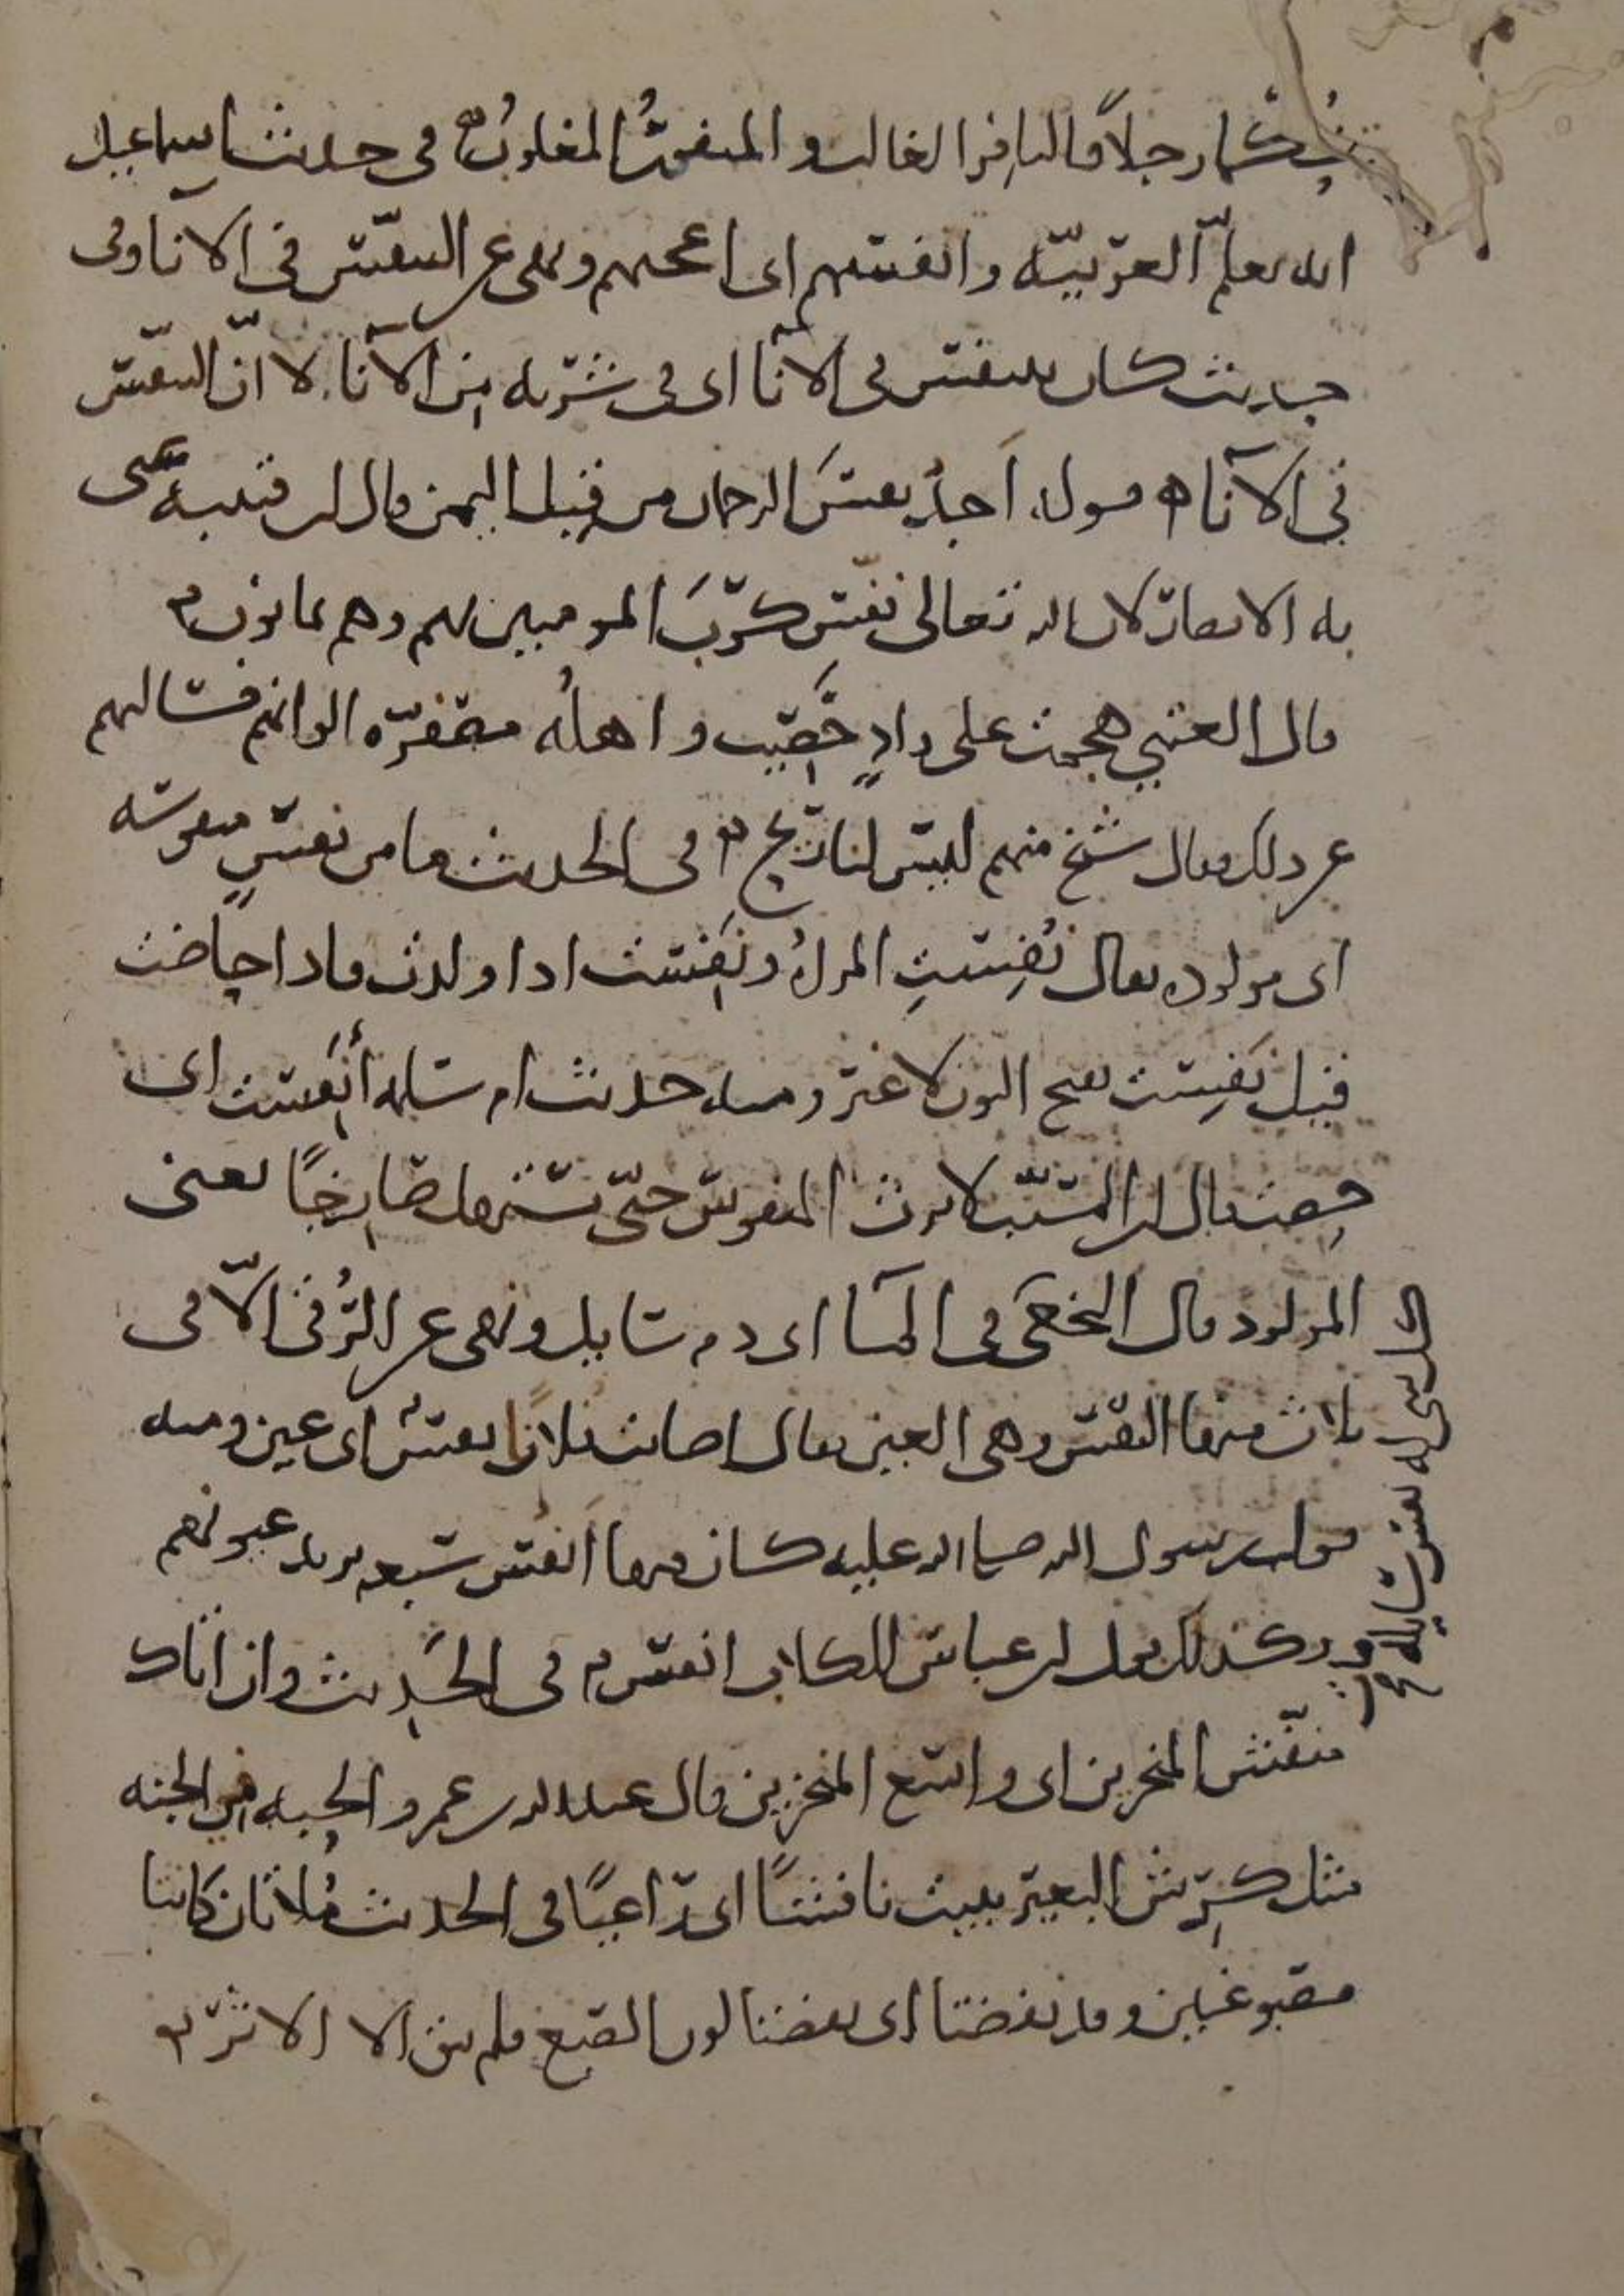 رجلا فالنافر الغالب والمنفور المغلوب في حديث اسماعيل
انه تعلم العربية وانفسهم اى اعجبهم ونهى عن التنفس فى الانا وفى
حديث كان يتنفس فى الانا اى فى شربه من الانا لا ان التنفس
فى الانا قوله اجد نفس الرحمان من قبل اليمن قال ابن قتيبة عنى
به الانصار لان الله تعالى نفس كرب المومنين بهم وهم يمانون
قال العتبي هجمت على وادٍ خصيب واهلُه مصفرّه الوانهم فسالتهم
عن ذلك فقال شيخ منهم ليس لنا ريح فى الحديث ما من نفسٍ منفوسه
اى مولوده يقال نُفِستِ المراةُ ونَفِست اذا ولدت فاذا حاضت
قيل نَفِست بفتح النون لا غير ومنه حديث ام سلمه أنَفِست اى
حِضت قال ابن المسيّب لا يرث المنفوس حتّى يستهل صارخًا يعنى
المولود قال النخعى فى الما اى دم سايل ونهى عن الرُقى الّا فى
ثلاث منها النفس وهى العين يقال اصابت فلانًا نفسٌ اى عين ومنه
قول رسول الله صلى الله عليه كان فيها انفس سبعه يريد عيونهم
وكذلك قول ابن عباس الكلاب انفس فى الحديث وان اتاك
متنفّش المنخرين اى واسع المنخرين قال عبد الله بن عمرو الحبه فى الجنه
مثل كرش البعير يبيت نافشًا اى راعيًا فى الحديث مُلاتان كانتا
مصبوغتين وقد نفضتا اى نفضتا لون الصبغ فلم يبق الا الاثر
نفس سايله